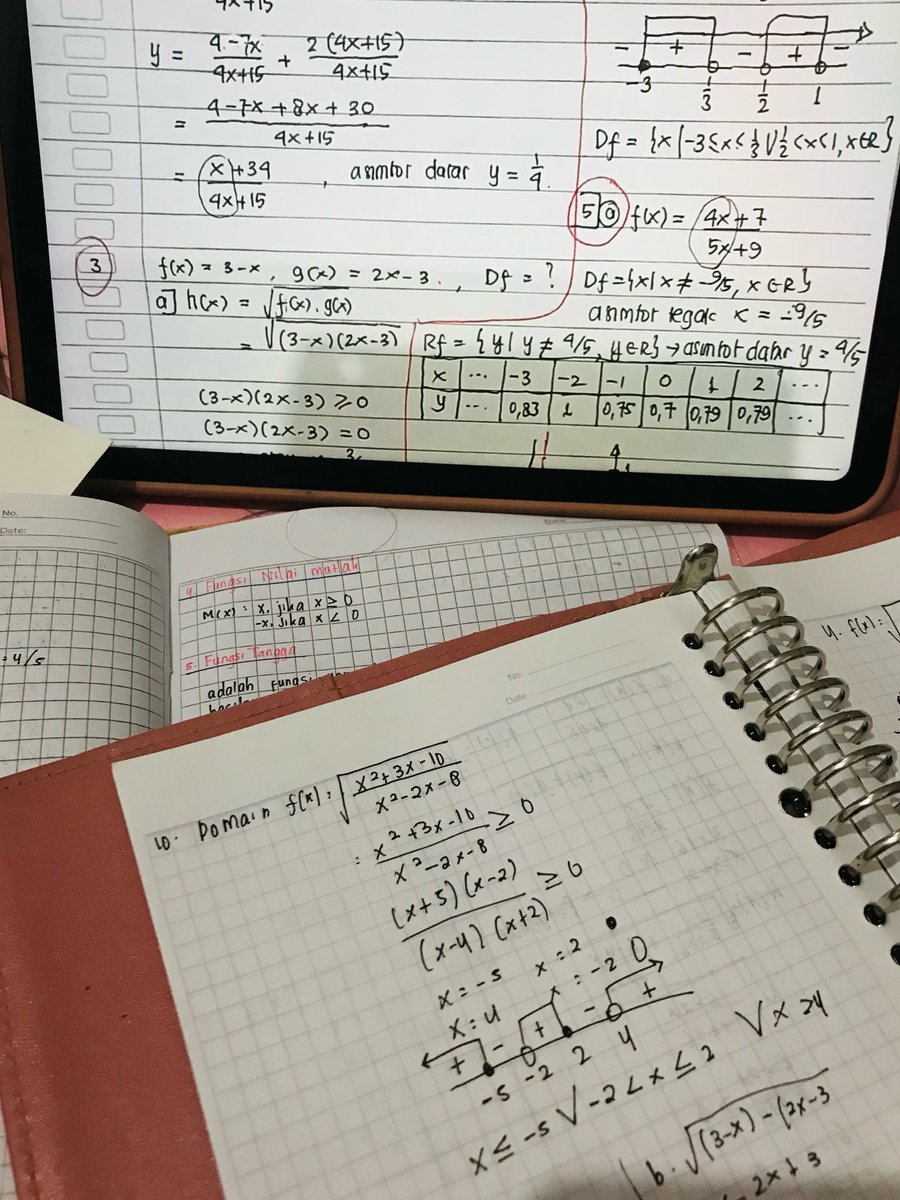 4x+15
y = \frac{4-7x}{4x+15} + \frac{2(4x+15)}{4x+15}
= \frac{4-7x+8x+30}{4x+15}
= \frac{x+34}{4x+15} , asimtot datar y = \frac{1}{4}.
3 f(x) = 3-x, g(x) = 2x-3. , Df = ?
a] h(x) = \sqrt{f(x).g(x)}
= \sqrt{(3-x)(2x-3)}
(3-x)(2x-3) ≥ 0
(3-x)(2x-3) = 0
- + - + -
-3 \frac{1}{3} \frac{1}{2} 1
Df = {x|-3≤x<\frac{1}{3} V \frac{1}{2}<x<1, x∈R}
5 a f(x) = \frac{4x+7}{5x+9}
Df = {x| x ≠ -9/5, x ∈ R}
asimtot tegak x = -9/5
Rf = {y| y ≠ 4/5, y∈R} → asimtot datar y = 4/5
x ... -3 -2 -1 0 1 2 ...
y ... 0,83 1 0,75 0,7 0,79 0,79 ...
No.
Date:
= 4/5
4. Fungsi Nilai mutlak
M(x) : x, jika x ≥ 0
-x, jika x < 0
5. Fungsi Tangga
adalah Fungsi
No
Date
10. Domain f(x) : \sqrt{\frac{x²+3x-10}{x²-2x-8}}
: \frac{x²+3x-10}{x²-2x-8} ≥ 0
\frac{(x+5)(x-2)}{(x-4)(x+2)} ≥ 0
x = -5 x = 2 ●
x = 4 x = -2 O
+ - + - +
-5 -2 2 4
x ≤ -5 V -2 < x ≤ 2 V x > 4
b. \sqrt{(3-x)-(2x-3}
2x+3
4. f(x) =